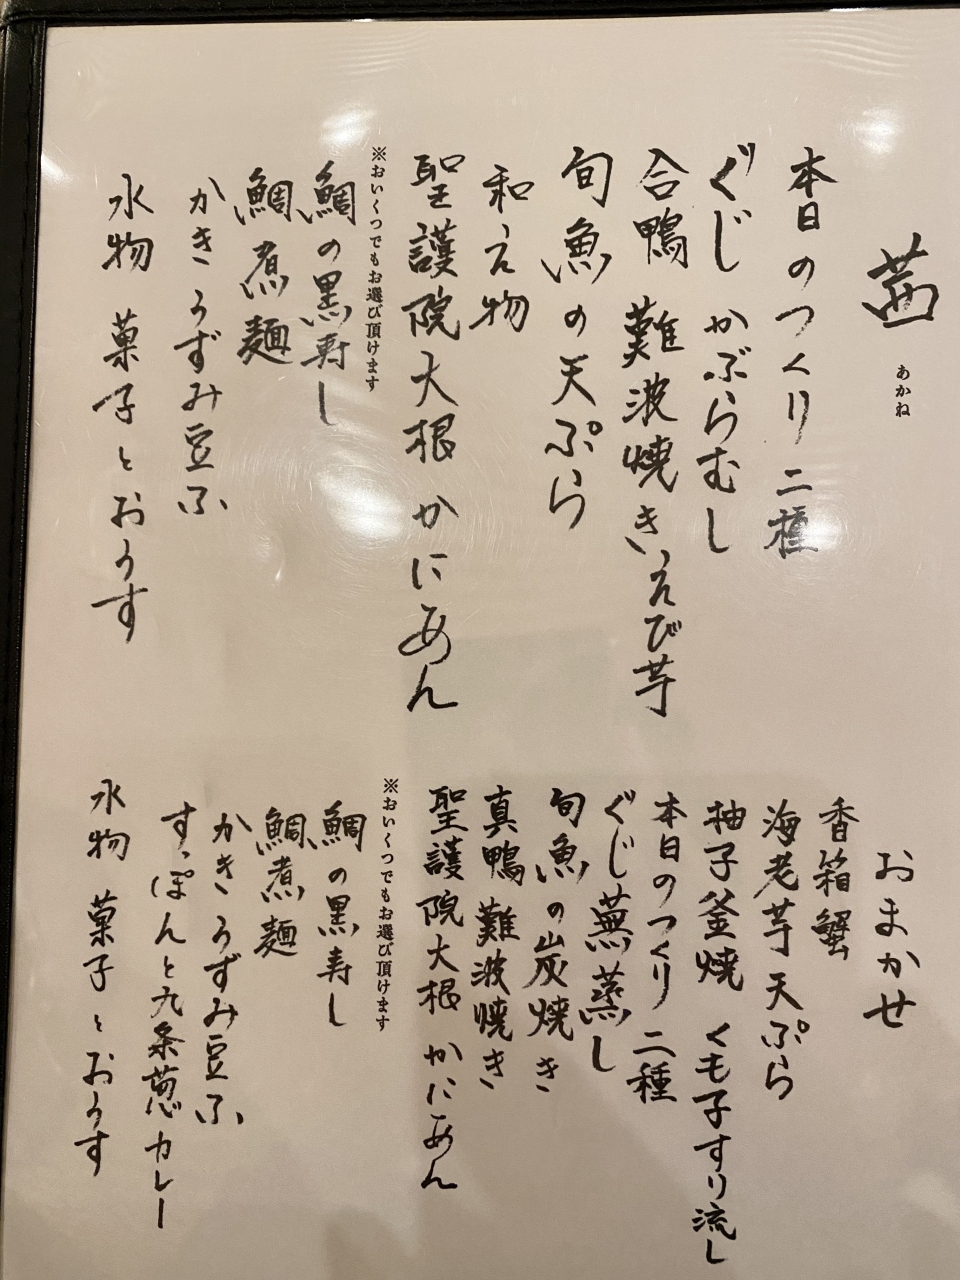 茜
あかね
本日のつくり 二種
ぐじ かぶらむし
合鴨 難波焼き、えび芋
旬魚の天ぷら
和え物
聖護院大根 かにあん
※おいくつでもお選び頂けます
鯛の黒寿し
鯛煮麺
かき うずみ豆ふ
水物 菓子とおうす
おまかせ
香箱蟹
海老芋天ぷら
柚子釜焼 くも子すり流し
本日のつくり 二種
ぐじ蕪蒸し
旬魚の炭焼き
真鴨 難波焼き
聖護院大根 かにあん
※おいくつでもお選び頂けます
鯛の黒寿し
鯛煮麺
かき うずみ豆ふ
すっぽんと九条葱カレー
水物 菓子とおうす